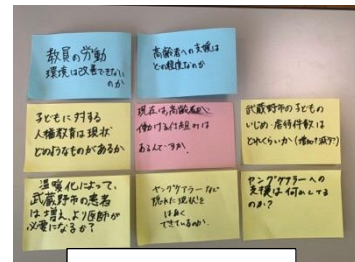 教員の労働
環境は改善できない
のか
高齢者への支援は
どの程度なのか
子どもに対する
人権教育は現状
どのようなものがあるか
現在は高齢者が
働ける仕組みは
あるんですか。
武蔵野市の子どもの
いじめ・虐待件数は
どれくらいか(増加?減少?)
温暖化によって、
武蔵野市の患者
は増え、より医師が
必要になるか?
ヤングケアラーなど
隠れた現状を
はあく
できているのか。
ヤングケアラーへの
支援は何かしてる
のか?